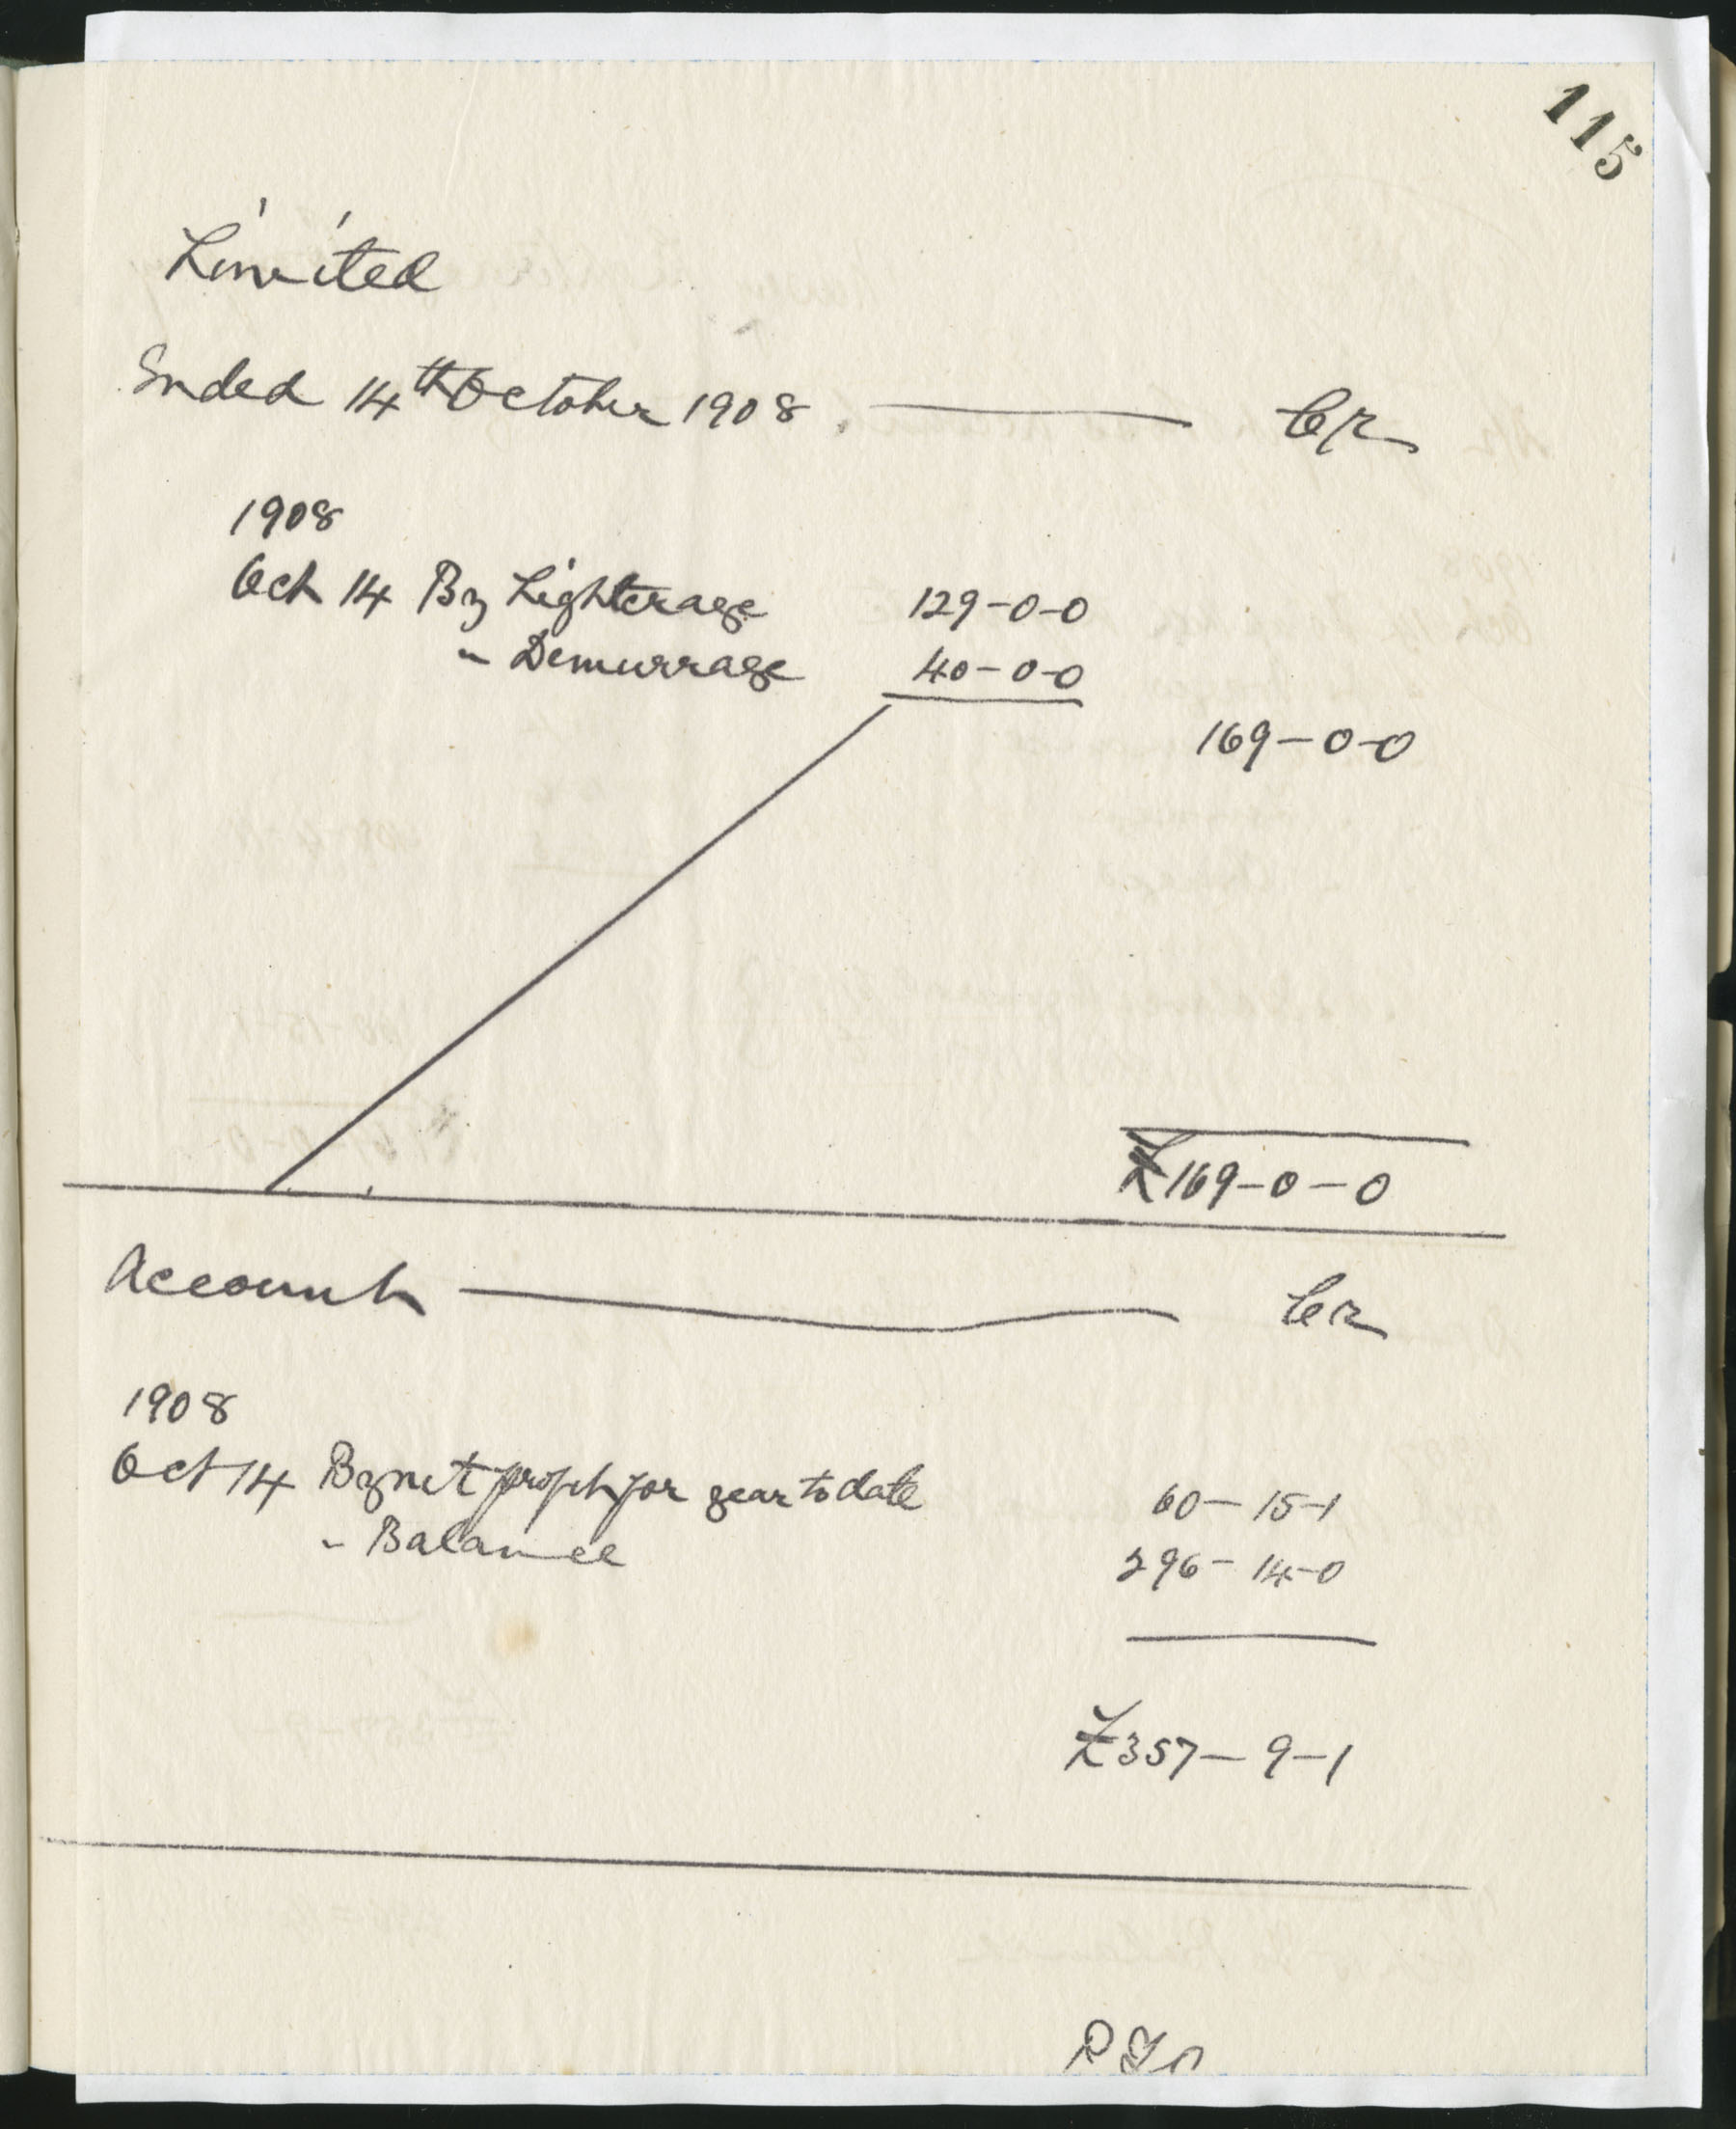 115
Limited
Ended 14th October 1908 Cr
1908
Oct 14 By Lighterage 129-0-0
" Demurrage 40-0-0
169-0-0
£169-0-0
Account Cr
1908
Oct 14 By net profit for year to date 60-15-1
" Balance 296-14-0
£357-9-1